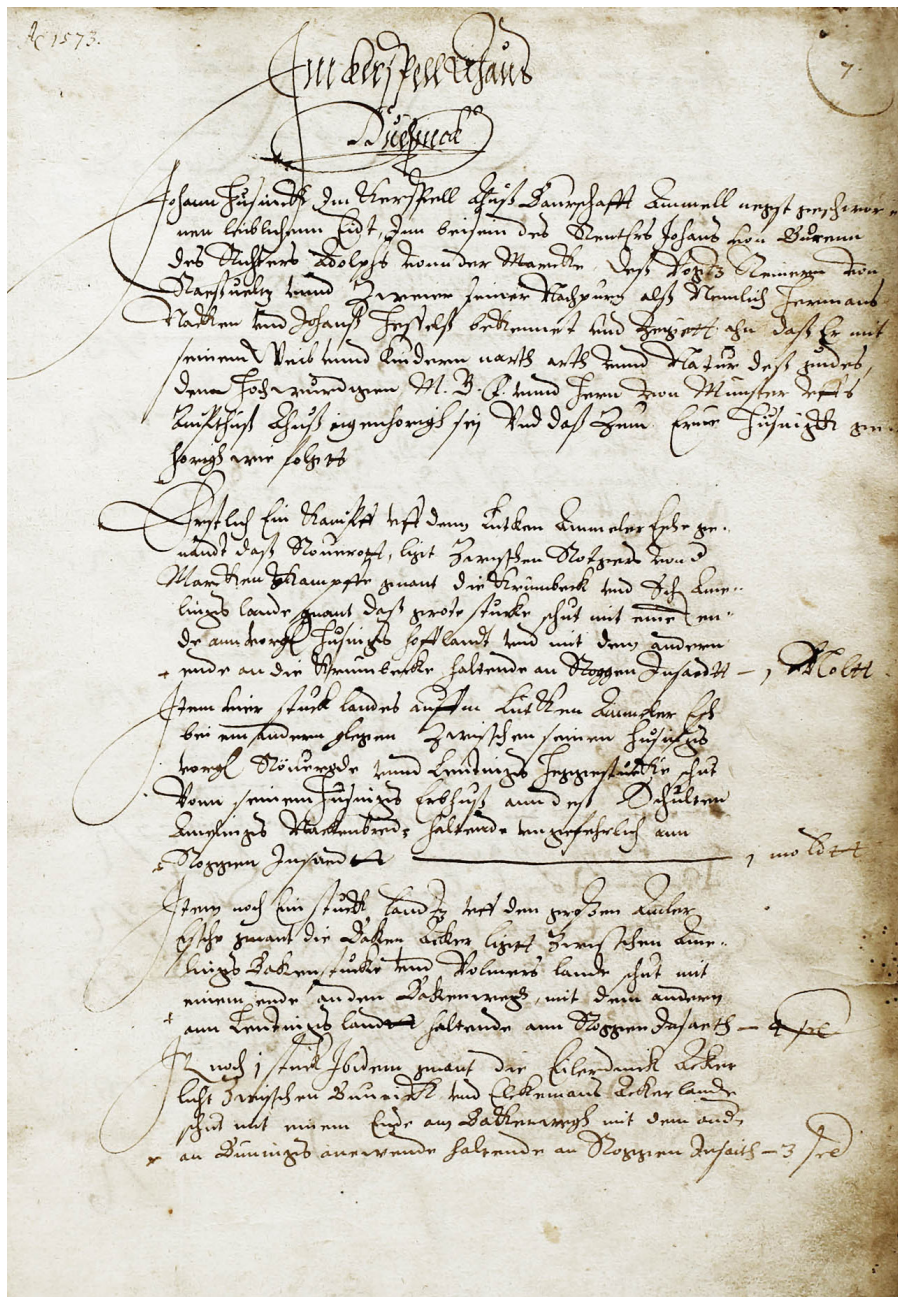 Ao 1573.
7.
Im kerspell Ahaus
Johann Husinck Im Kerspell Ahuß Baurschafft Ammell negst geschwor¬
nen leiblichenn Eidt, Inn beisein des Renthrs Johans von Burenn
des Richters Adolphs vonn der Marcke, deß Vogts Reinern von
Raeßueltt vnnd Zweyer seiner Nachpurn alß Nemlich Hermans
Nacken vnd Johanß Hesselß bekennet vnd Zeigett ahn daß Er mit
seinem Weib vnnd Kindern narth arth vnnd Natur deß gudes,
dem Hochwurdigen M. G. F. vnnd Hern von Munster vffs
Ampthuß Ahuß eigenhorigh sej Vnd daß Zum Erue Husingk ge¬
horigh wie folgett
Erstlich Ein Kampff vff dem Lutken Ammeler Esche ge¬
nandt daß Rouerott, ligt Zwischen Rotgers von d
Marcken Kampffe gnant die Krumbeck vnd Sch Ame¬
lings lande gnant daß grote stucke schut mit eine en¬
de ann vorgl Husings hofflandt vnd mit dem andern
ende an die Krumbecke haltende an Roggen Insaedtt – 1 Moltt
Item vier stuck landes auffm Lutken Ammeler Esch
bei einandern gelegen Zwischen seinen Husings
vorgl Röuerode vnnd Lentings Heggestucke schut
Vonn seinem Husings Erbhuß ann deß Schulten
Amelings Nackenbrede haltende vngefehrlich ann
Roggen Insaedtt 1 moldtt
Item noch Ein stuck landtz vff den großen Amler
Esche gnant die Baken Acker ligtt Zwisschen Ame¬
lings Bakenstucke vnd Volmers lande schut mit
einem ende an den Bakenwegh, mit dem andern
ann Lentings lande haltende ann Roggen Insaeth – 4 sce
It noch 1 stuck Ibidem gnant die Eilerdinck Acker
licht Zwischen Buninck vnd Elckemans Ackerlande
schut mit einem Ende am Bakenwegh mit dem and
an Bunings anewende haltende an Roggen Insaith – 3 sce